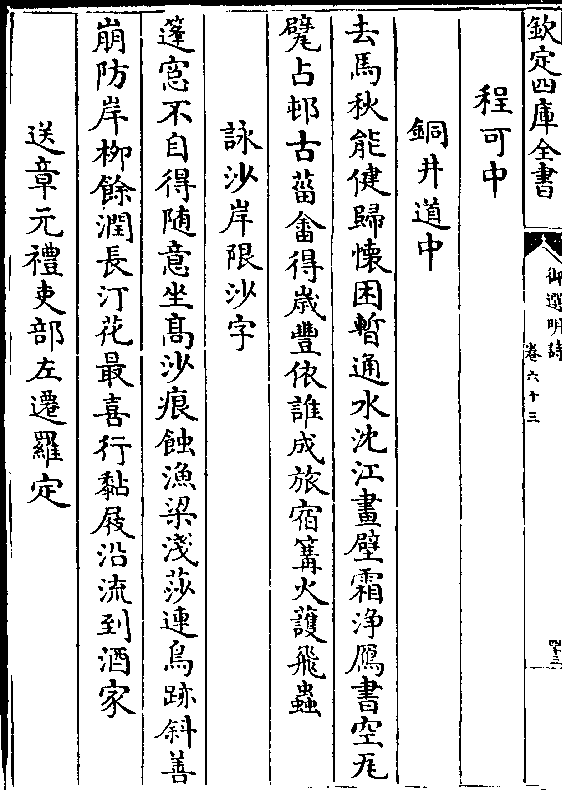 欽定四庫全書
御選明詩
卷六十三
四十三
程可中
銅井道中
去馬秋能健歸懷困暫通水沈江畫壁霜浄鴈書空瓦
甓占邨古菑畬得歳豐依誰成旅宿篝火護飛蟲
詠沙岸限沙字
篷窓不自得随意坐髙沙痕蝕漁梁淺莎連鳥跡斜善
崩防岸栁餘潤長汀花最喜行黏屐沿流到酒家
送章元禮吏部左遷羅定